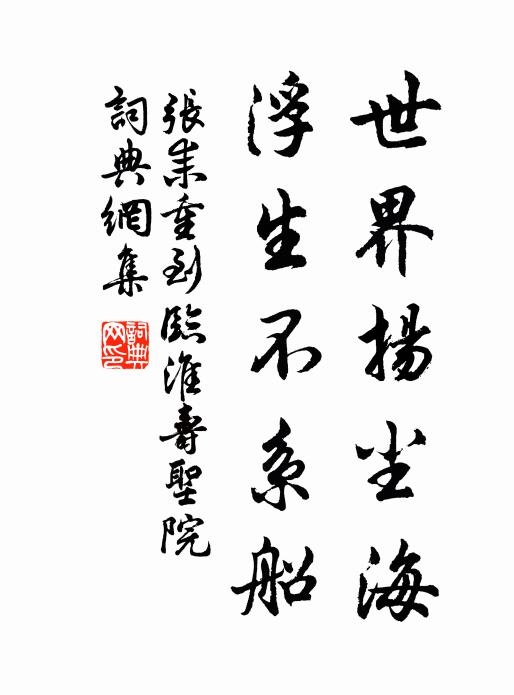 世界揚尘海
浮生不系船
張耒重到臨淮壽聖院
詞典網集
詞典网印